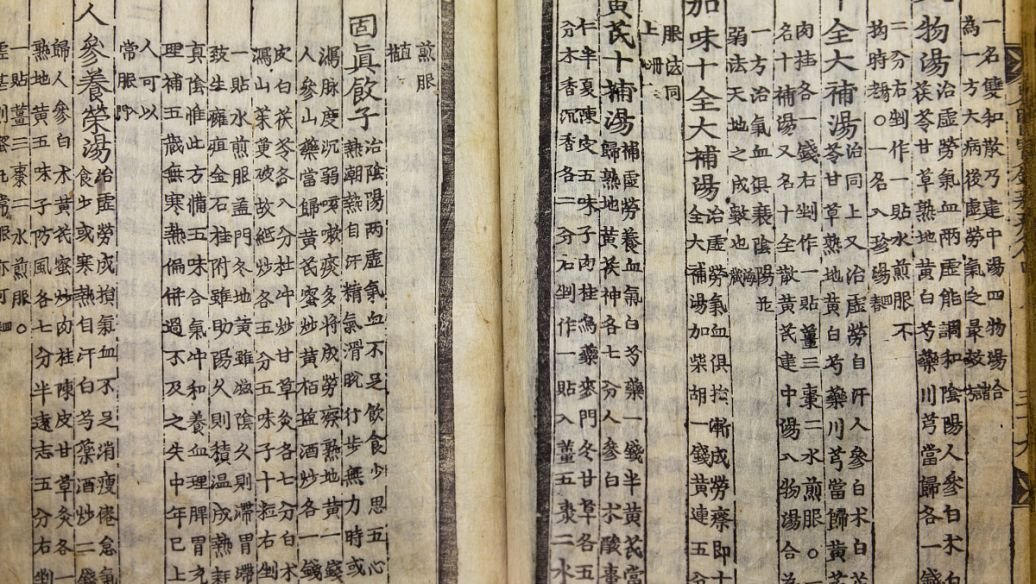 一名雙和散乃建中湯四物湯合
為一方大病後虛勞氣乏最效諸方
三十八
物湯治虛勞氣血兩虛能調和陰陽人參白朮
茯苓甘草熟地黃白芍藥川芎當歸各一錢
二分右剉作一貼水煎服不
拘時易老○一名八珍湯回春
全大補湯治同上又治虛勞自汗人參白朮白
苓甘草熟地黃白芍藥川芎當歸黃芪
肉桂各一錢右剉作一貼薑三棗二水煎服○
名十補湯又名十全散黃芪建中湯八物湯合
一方治氣血俱衰陰陽並
弱法天地之成數也海藏
加味十全大補湯治虛勞氣血俱損漸成勞瘵即十
全大補湯加柴胡一錢黃連五分
服法同
上丹心
黃芪十補湯補虛勞養血氣白芍藥一錢半黃芪當
歸熟地黃茯神各七分人參白朮酸棗
仁半夏陳皮五味子肉桂烏藥麥門冬甘草各五
分木香沉香各二分右剉作一貼入薑五棗二水
煎服
直指
固眞飮子治陰陽兩虛氣血不足飲食少思五心
熱潮熱自汗精氣滑脫行步無力時或
瀉脉度沉弱嗽痰多將成勞瘵熟地黃一錢
人參山藥當歸黃芪蜜炒黃栢鹽酒炒各一錢
皮白茯苓各八分杜冲炒甘草灸各七分白朮
瀉山茱萸破故紙炒各五分五味子十粒右剉
一貼水煎服盖門冬地黃雖滋陰久則滯胃
致生癰疽金石桂附雖助陽久則積溫成熱
眞陰惟此方備五味合氣冲和養血理脾胃充
理補五藏無寒熱偏併過不及之失中年已上
人可以
常服入門
人參養榮湯治虛勞成損氣血不足消瘦倦怠氣
食少或寒熱自汗白芍藥酒炒二錢
歸人參白朮黃芪蜜炒肉桂陳皮甘草灸各一
熟地黃五味子防風各七分半遠志五分右剉
一貼薑三棗二水煎服○
丸常服亦可回